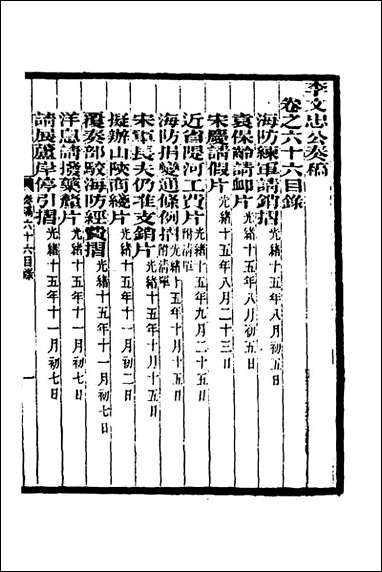 李文忠公奏稿
卷之六十六目錄
海防練軍請銷摺 光緒十五年八月初五日
袁保齡請卹片 光緒十五年八月初五日
宋慶請假片 光緒十五年八月二十三日
近省隄河工費片 附清單 光緒十五年九月二十五日
海防捐變通條例摺 附清單 光緒十五年十月十五日
宋軍長夫仍准支銷片 光緒十五年十月十五日
擬辦山陝商綫片 光緒十五年十一月初二日
覆奏部駁海防經費摺 光緒十五年十一月初七日
洋息請撥藥釐片 光緒十五年十一月初七日
請展蘆岸停引摺 光緒十五年十一月初七日
奏稿六十六目錄
一